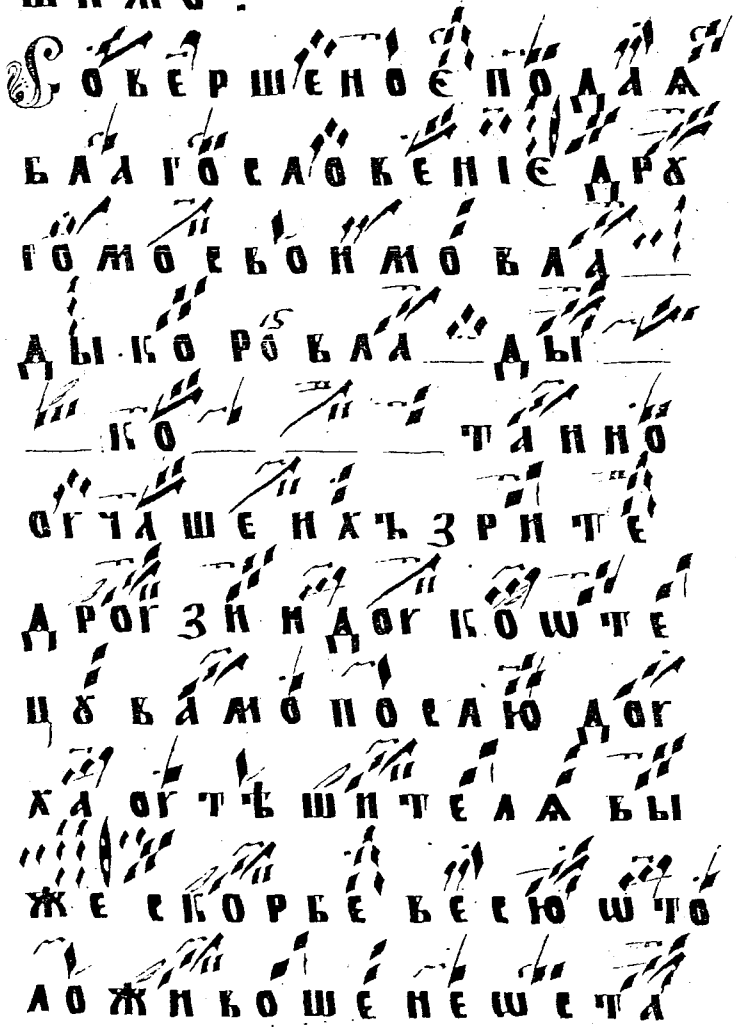 Совершеноє подаѧ
благословеніє дрꙋ
гомо своимо вла
ды·ко ро вла ды
ко таино
оучаше ихъ зрите
дроузи и доу ко ѡте
цꙋ вамо послю доу
ха оутѣшителѧ бы
же скорбе весю ѡто
ложивоше не ѡста